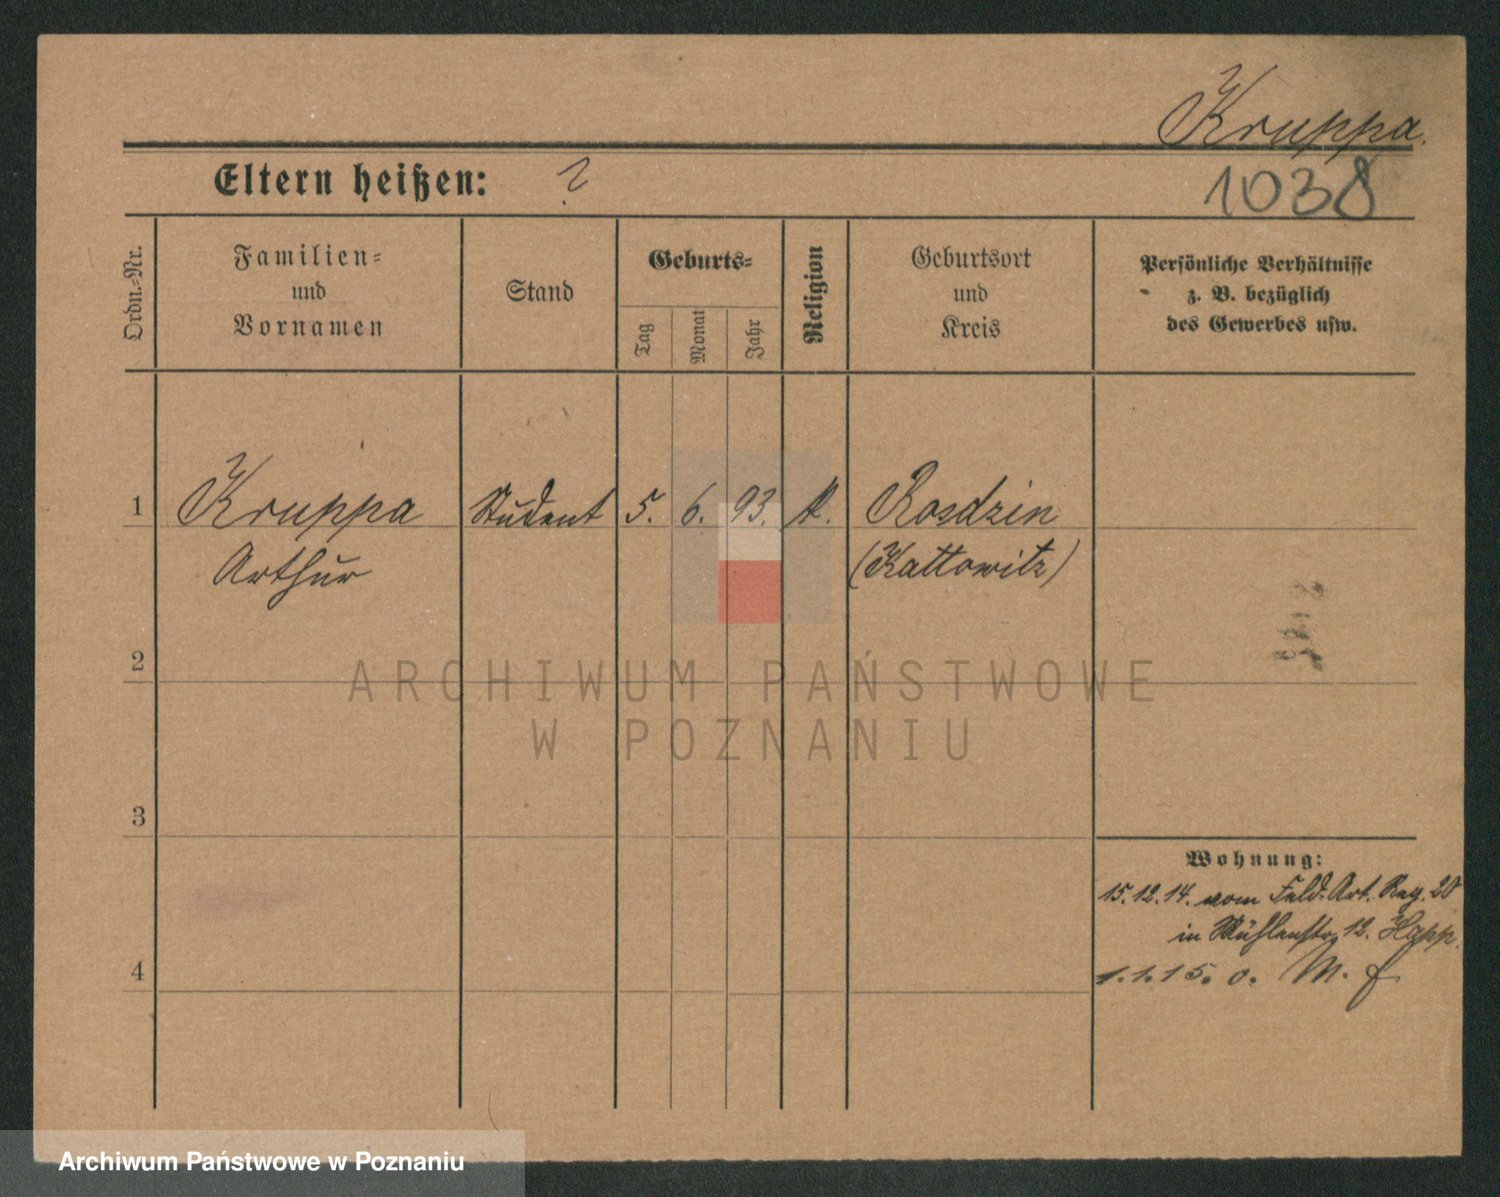 Kruppa.
Eltern heißen: ?
1038
Ordn.-Nr.
Familien-
und
Vornamen
Stand
Geburts-
Tag
Monat
Jahr
Religion
Geburtsort
und
Kreis
Persönliche Verhältnisse
z. B. bezüglich
des Gewerbes usw.
1 Kruppa Student 5. 6. 93. k. Rosdzin
Arthur (Kattowitz)
2
3
4
Wohnung:
15.12.14. vom Feld-Art. Reg. 20
in Mühlenstr. 12. Happ.
1.1.15. o. M. f
ARCHIWUM PAŃSTWOWE
W POZNANIU
Archiwum Państwowe w Poznaniu